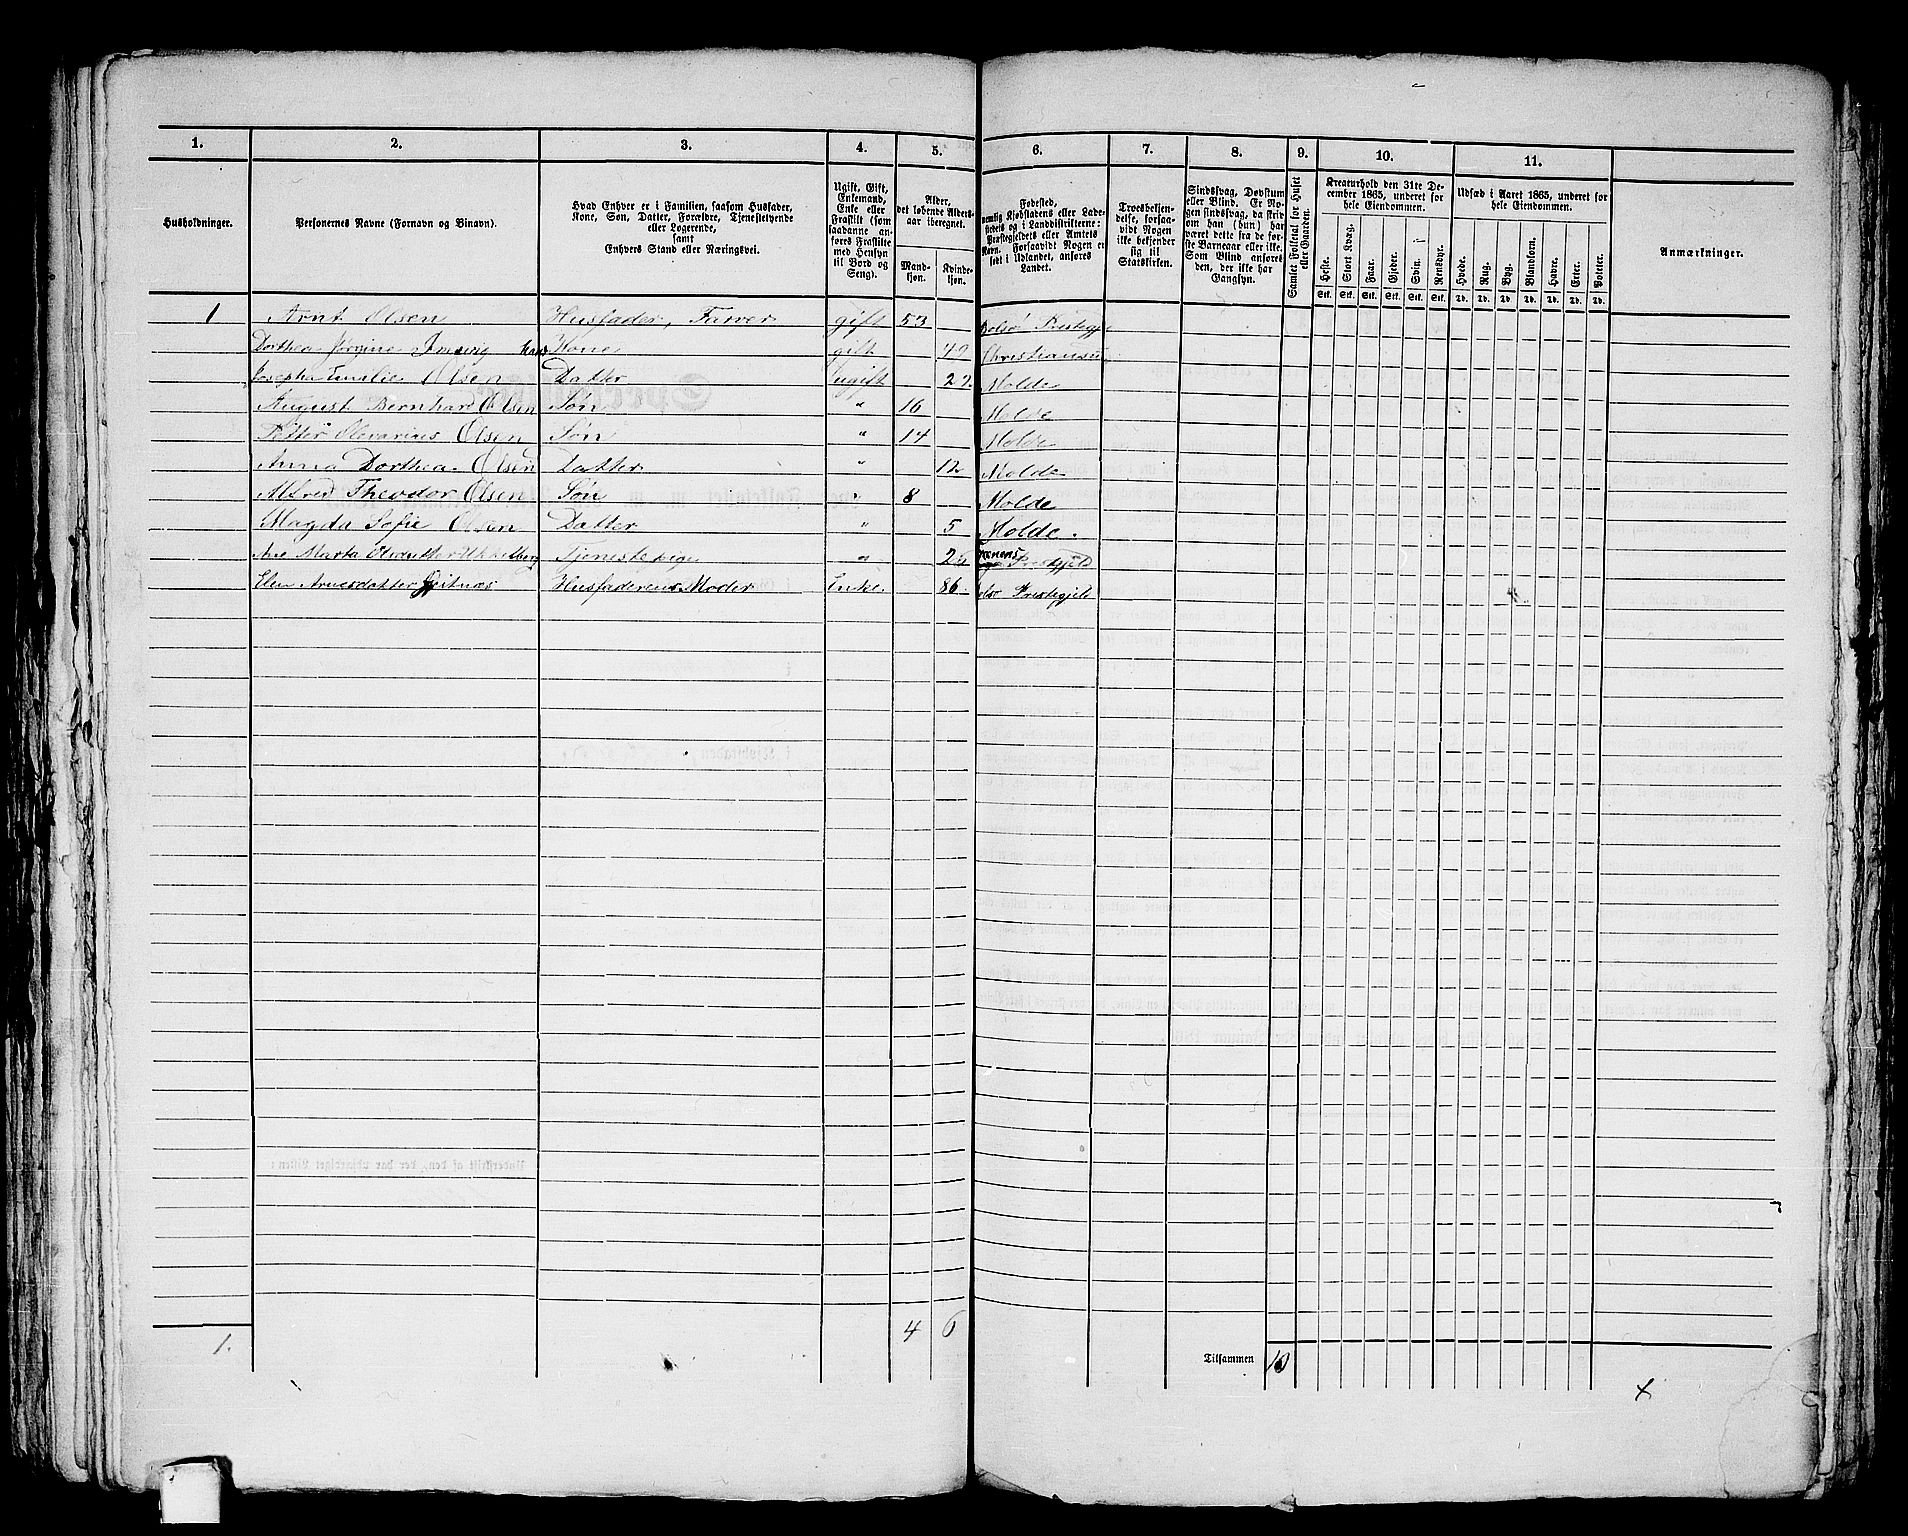 1. 2. 3. 4. 5. 6. 7. 8. 9. 10. 11.
Husholdninger.
Personernes Navne (Fornavn og Binavn).
Hvad Enhver er i Familien, saasom Husfader,
Kone, Søn, Datter, Forældre, Tjenestetyende
eller Logerende,
samt
Enhvers Stand eller Næringsvei.
Ugift, Gift,
Enkemand,
Enke eller
Fraskilt (som
saadanne an-
føres Fraskilte
med Hensyn
til Bord og
Seng).
Alder,
det løbende Alders-
aar iberegnet.
Mand-
kjøn.
Kvinde-
kjøn.
Fødested,
nemlig Kjøbstadens eller Lade-
stedets og i Landdistrikterne:
Præstegjeldets eller Amtets
Navn. Forsaavidt Nogen er
født i Udlandet, anføres
Landet.
Troesbekjen-
delse, forsaa-
vidt Nogen
ikke bekjender
sig til
Statskirken.
Sindssvag, Døvstum
eller Blind. Er No-
gen sindssvag, da skriv
om han (hun) har
været dette fra de før-
ste Barneaar eller ikke.
Som Blind anføres
den, der ikke har
Gangsyn.
Samlet Folketal for Huset
eller Gaarden.
Kreaturhold den 31te De-
cember 1865, underet for
hele Eiendommen.
Heste. Stort Kvæg. Faar. Gjeder. Svin. Rensdyr.
Stk. Stk. Stk. Stk. Stk. Stk.
Udsæd i Aaret 1865, underet for
hele Eiendommen.
Hvede. Rug. Byg. Blandkorn. Havre. Erter. Poteter.
Td. Td. Td. Td. Td. Td. Td.
Anmærkninger.
1 Arnt Olsen Husfader, Farver gift 53 Bolsø Præstegj:
Dorthea Jørgine Kone gift 49 Christiansu
Josepha Emilie Olsen Datter ugift 22 Molde
August Bernhar Olsen Søn " 16 Molde
Petter Olevarius Olsen Søn " 14 Molde
Anna Dorthea Olsen Datter " 12 Molde
Alfred Theodor Olsen Søn " 8 Molde
Magda Sofie Olsen Datter " 5 Molde.
Ane Marta Olsdatter Tjenestepige " 25 Præstgjeld
Elen Arnesdatter Gjeitnæs Husfaderens Moder Enke. 86. olsø Præstegjeld
1. 4 6
Tilsammen 10